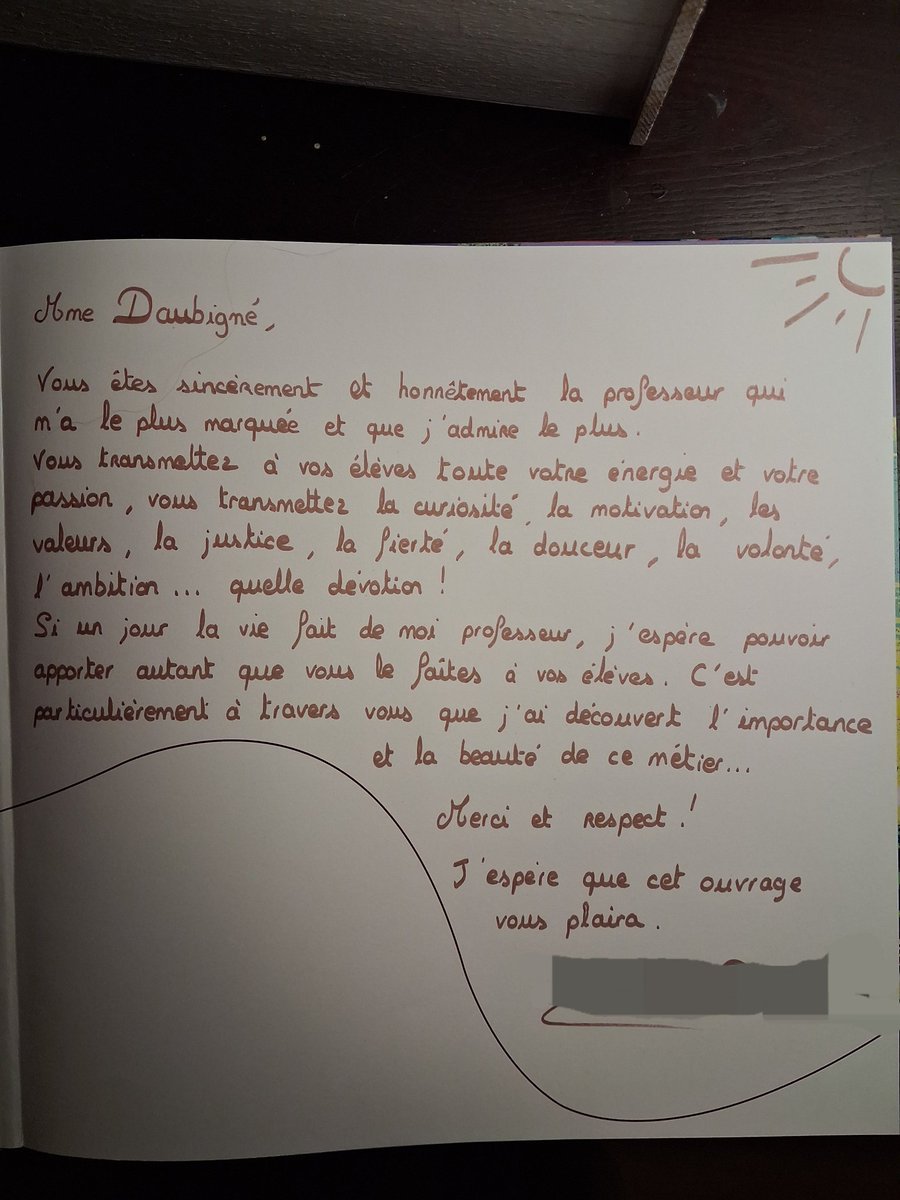 Mme Daubigné,
Vous êtes sincèrement et honnêtement la professeur qui
m'a le plus marquée et que j'admire le plus.
Vous transmettez à vos élèves toute votre énergie et votre
passion, vous transmettez la curiosité, la motivation, les
valeurs, la justice, la fierté, la douceur, la volonté,
l'ambition... quelle dévotion !
Si un jour la vie fait de moi professeur, j'espère pouvoir
apporter autant que vous le faîtes à vos élèves. C'est
particulièrement à travers vous que j'ai découvert l'importance
et la beauté de ce métier...
Merci et respect !
J'espère que cet ouvrage
vous plaira.